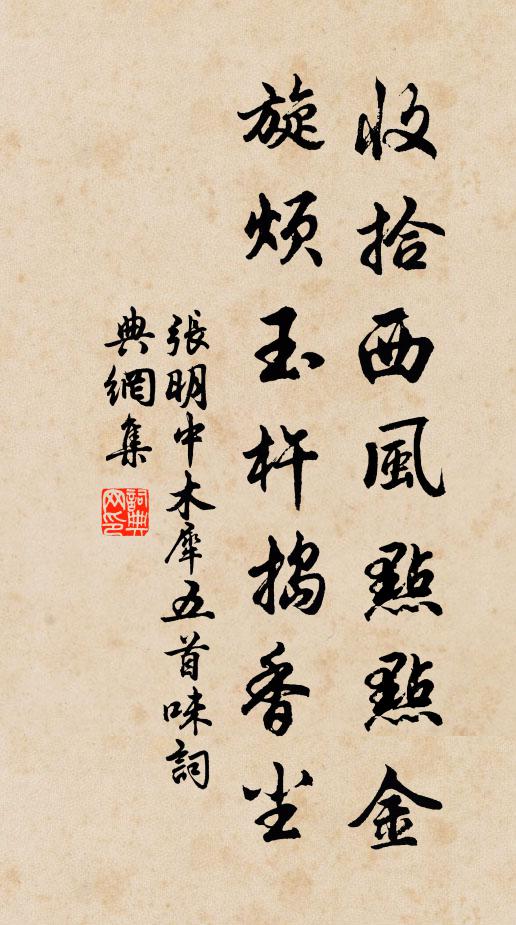 收拾西風點點金
旋煩玉杵搗香尘
張明中木犀五首味詞
典網集
詞典
网印